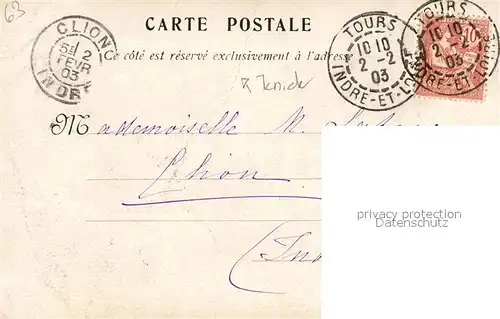 63
CARTE POSTALE
Ce côté est réservé exclusivement à l'adresse
CLION
5E 2
FEVR
03
INDRE
TOURS
10 10
2 - 2
03
INDRE-ET-LOIRE
TOURS
10 10
2 - 2
03
INDRE-ET-LOIRE
10
Mademoiselle M.
Clion
(Ind
privacy protection
Datenschutz